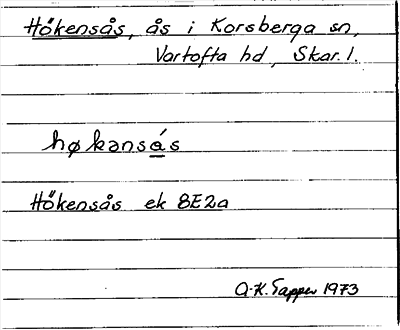 Hökensås, ås i Korsberga sn,
Vartofta hd, Skar. l.
høkənsás
Hökensås ek 8E2a
A-K. Tapper 1973